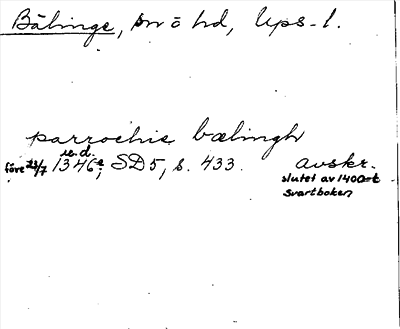 Bälinge, sn o hd, Upps-l.
parrochie bælingh
u.d.
före 23/7 1346, SD5, s. 433. avskr.
slutet av 1400-t
Svartboken